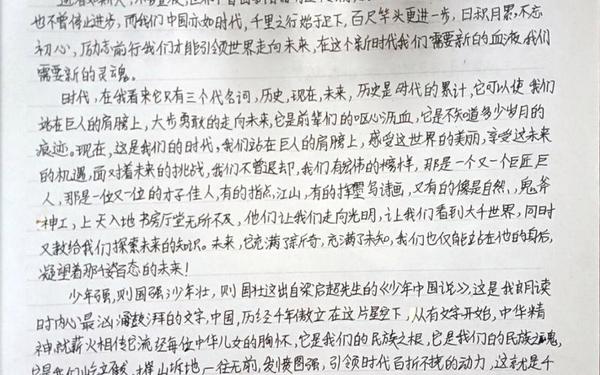 也不曾停止进步，而我们中国亦如时代，千里之行始于足下，百尺竿头更进一步，日积月累，不忘
初心，励志前行我们才能引领世界走向未来，在这个新时代我们需要新的血液，我们
需要新的灵魂。
时代，在我看来它只有三个代名词，历史，现在，未来，历史是时代的累计，它可以使我们
站在巨人的肩膀上，大步勇敢的走向未来，它是前辈们的呕心沥血，它是不知道多少岁月的
痕迹。现在，这是我们的时代，我们站在巨人的肩膀上，感受这世界的美丽，享受这未来
的机遇，面对着未来的挑战，我们不曾退却，我们有宏伟的榜样，那是一个又一个巨匠巨
人，那是一位又一位的才子佳人，有的指点江山，有的挥墨写诗画，又有的像是自然，鬼斧
神工，上天入地书房厅堂无所不及，他们让我们走向光明，让我们看到大千世界，同时
又教给我们探索未来的知识。未来，它充满了新奇，充满了未知，我们也仅能站在他的身后，
凝望着那千姿百态的未来！
少年强，则国强少年壮，则国壮这出自梁启超先生的《少年中国说》，这是我朗读
时内心最汹涌澎湃的文字，中国，历经千年傲立在这片星空下，从有文字开始，中华精
神就薪火相传它流经每位中华儿女的胸怀，它是我们的民族之根，它是我们的民族之魂，
一往无前，发愤图强，引领时代百折不挠的动力，这就是千